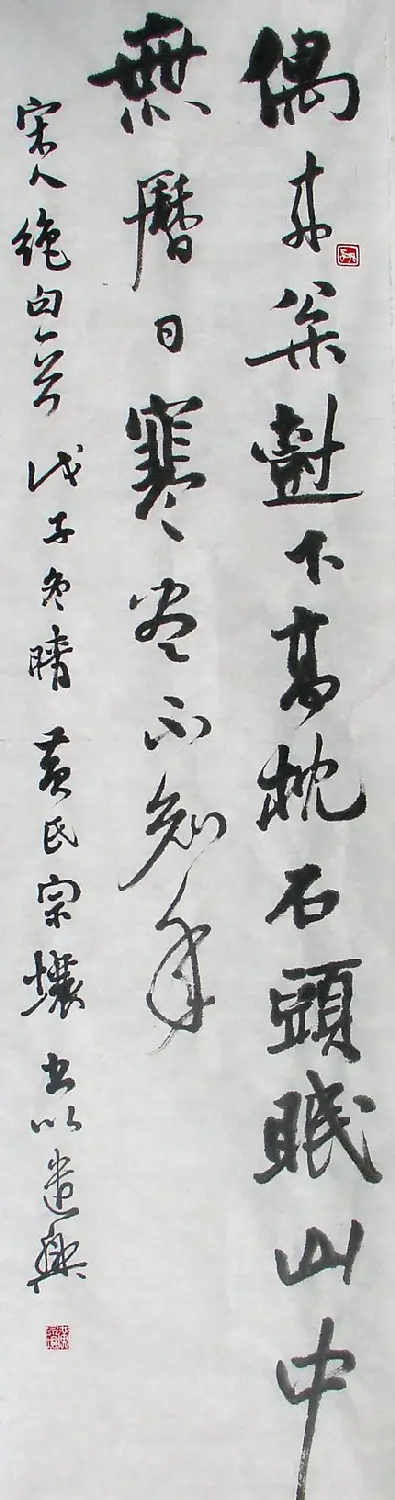 偶來枀樹下高枕石頭眠山中
無曆日寒盡不知年
宋人絶句一首 戊子冬晴 黄氏宗壤 书以遣興